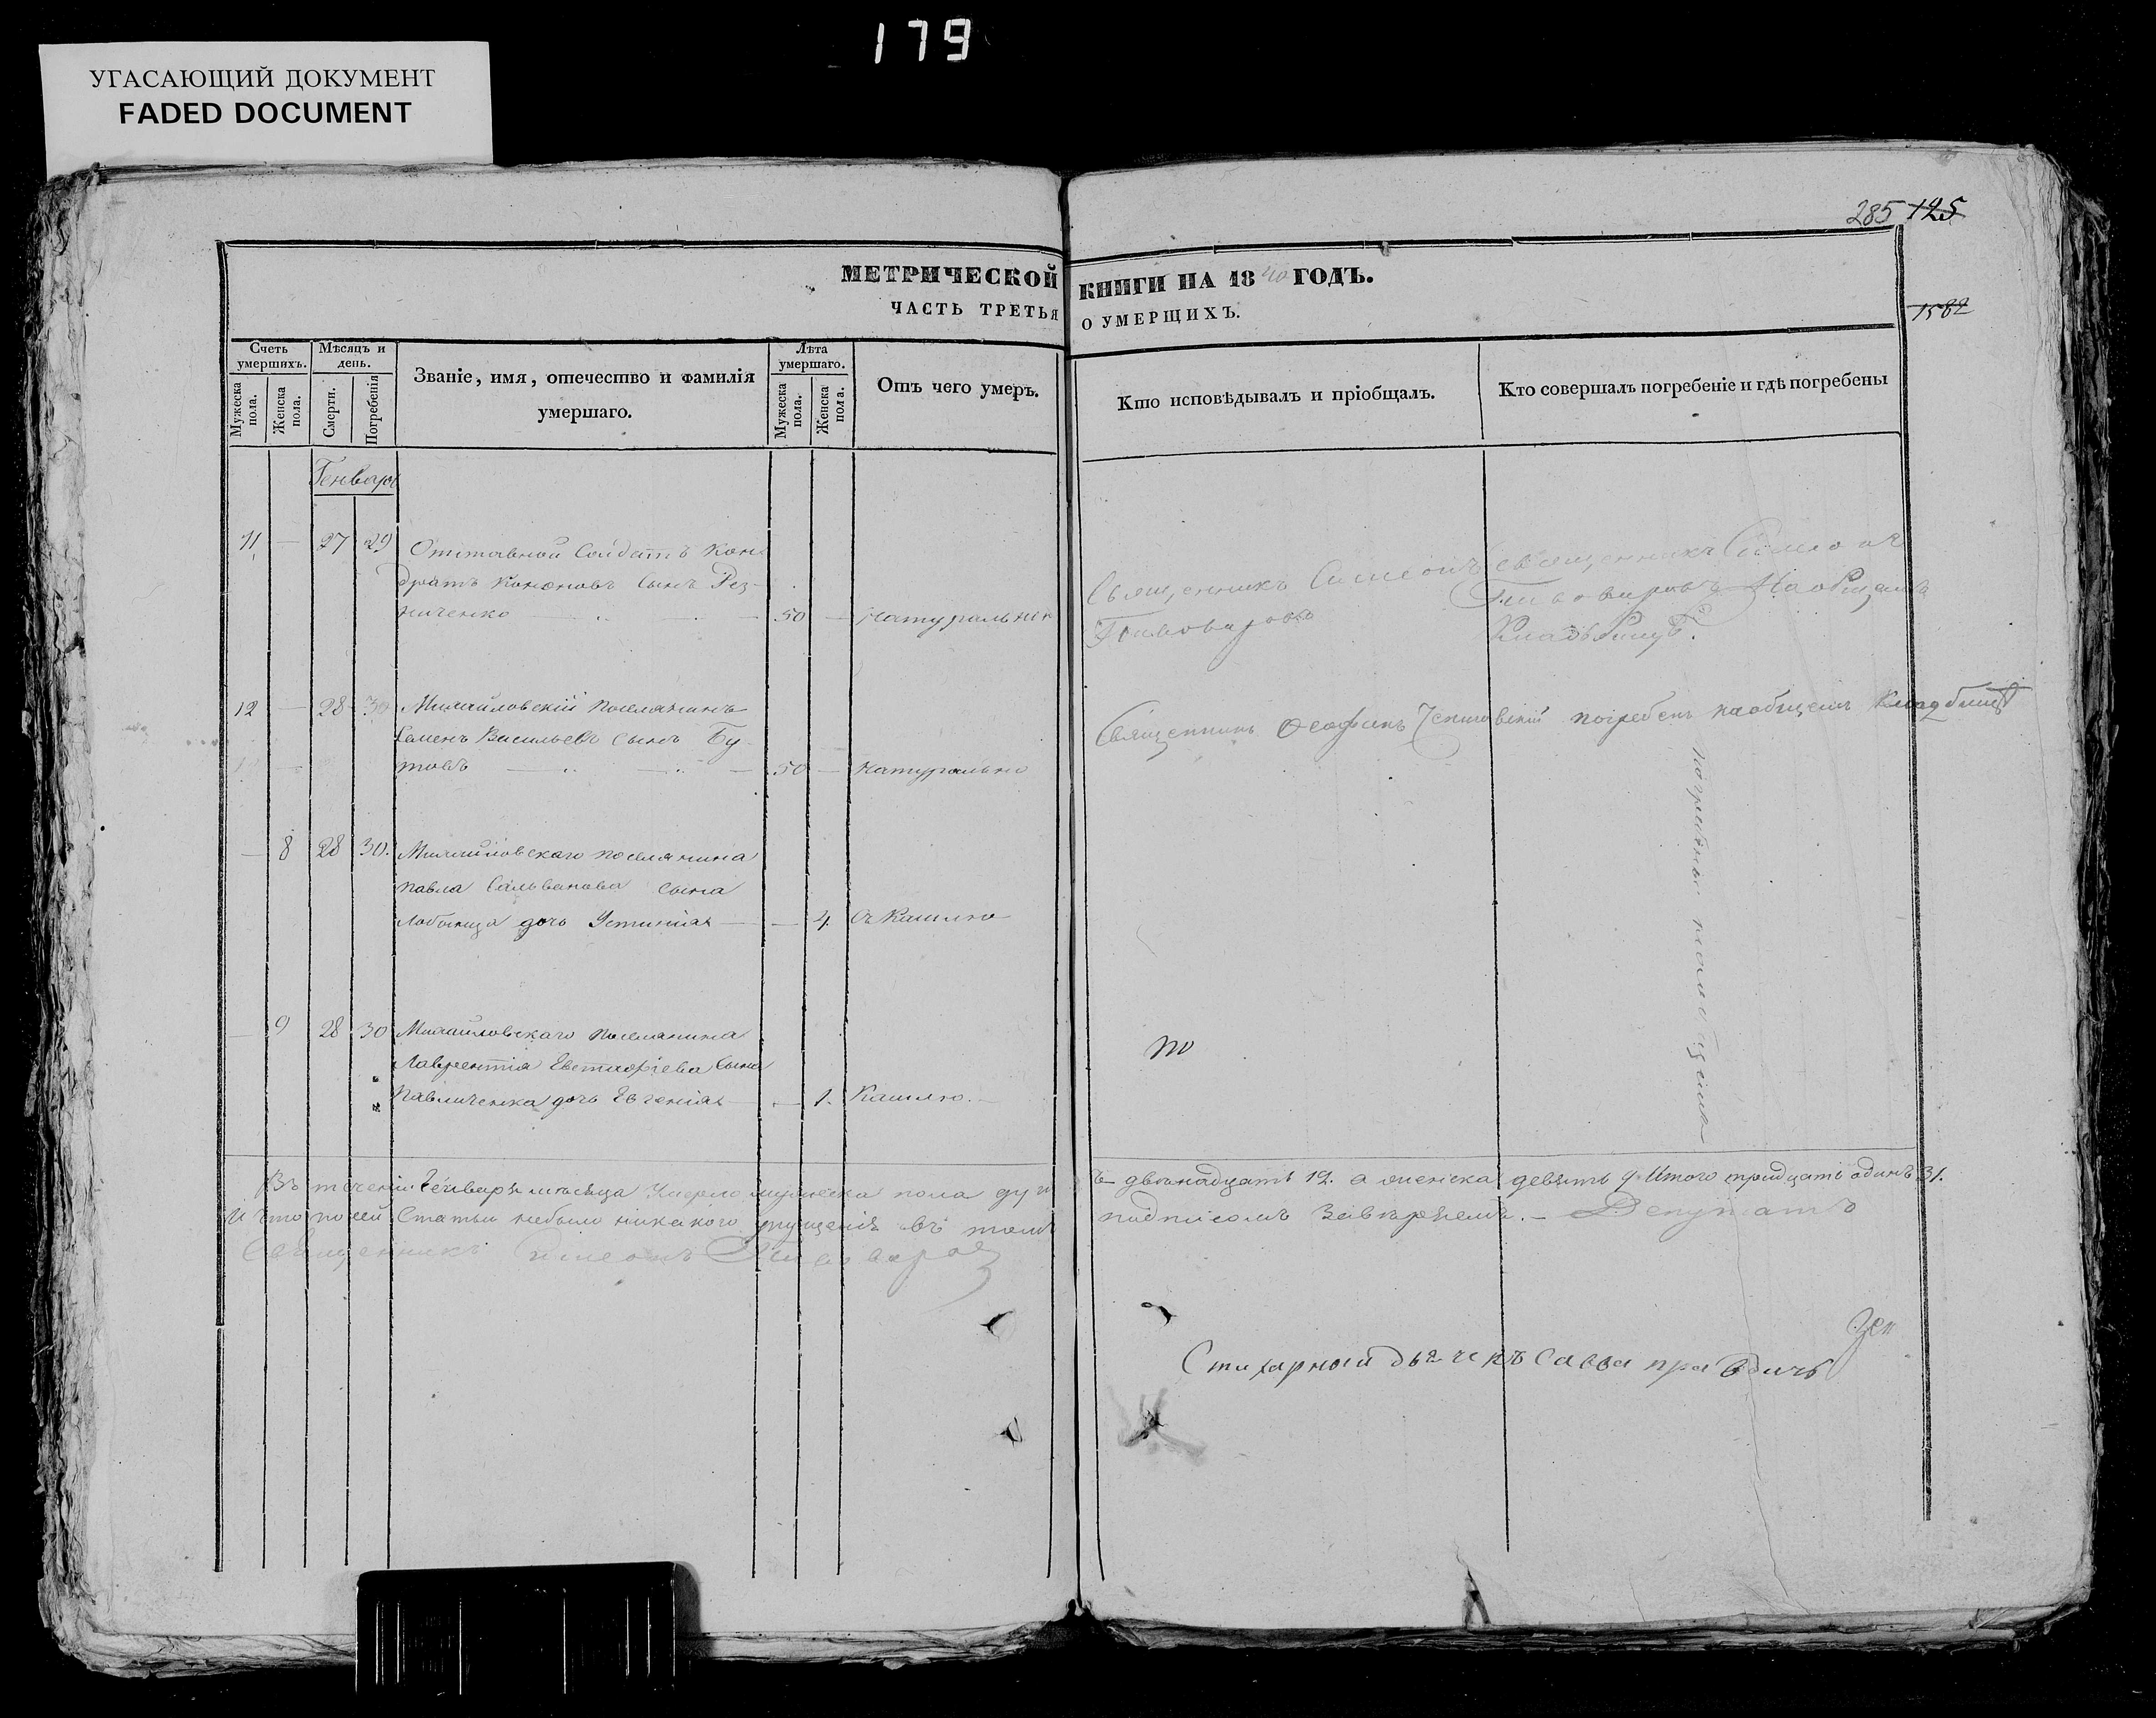 179
УГАСАЮЩИЙ ДОКУМЕНТ
FADED DOCUMENT
285 125
1582
МЕТРИЧЕСКОЙ КНИГИ НА 1840 ГОДЪ.
ЧАСТЬ ТРЕТЬЯ О УМЕРЩИХЪ.
Счеть умершихъ.
Мужеска пола.
Женска пола.
Мѣсяцъ и день.
Смерти.
Погребенія
Званіе, имя, отечество и фамилія умершаго.
Лѣта умершаго.
Мужеска пола.
Женска пола.
Отъ чего умеръ.
Кто исповѣдывалъ и пріобщалъ.
Кто совершалъ погребеніе и гдѣ погребены
Генварь
11 — 27 29 Отставной Солдатъ Кон-
дратъ Кононовъ сынъ Рез-
ниченко 50 — натурально
Священникъ Симеонъ
Пивоваровъ
священникъ Симеонъ
Пивоваровъ На общемъ
Кладбищѣ.
12 — 28 30 Михайловскій поселянинъ
Семенъ Васильевъ сынъ Бу-
товъ 50 — натурально
Священникъ Феофанъ погребенъ на общемъ Кладбищѣ
— 8 28 30. Михайловскаго поселянина
павла Сильванова сына
Лобынца дочь Устинія — 4. Кашлю
погребены на общемъ
— 9 28 30 Михайловскаго поселянина
Лаврентія Евстафіева сына
Павличенка дочь Евгенія — 1. Кашлю.
то
Въ теченіи Генваря мѣсяца умерло мужеска пола душъ двѣнадцать 12. а женска девять 9. Итого тридцать одинъ 31.
И что по сей Статьи небыло никакого упущенія въ томъ подписомъ завѣряемъ. — Депутатъ
Священникъ Симеонъ Пивоваров
Стихарный дьячекъ Савва правдичъ